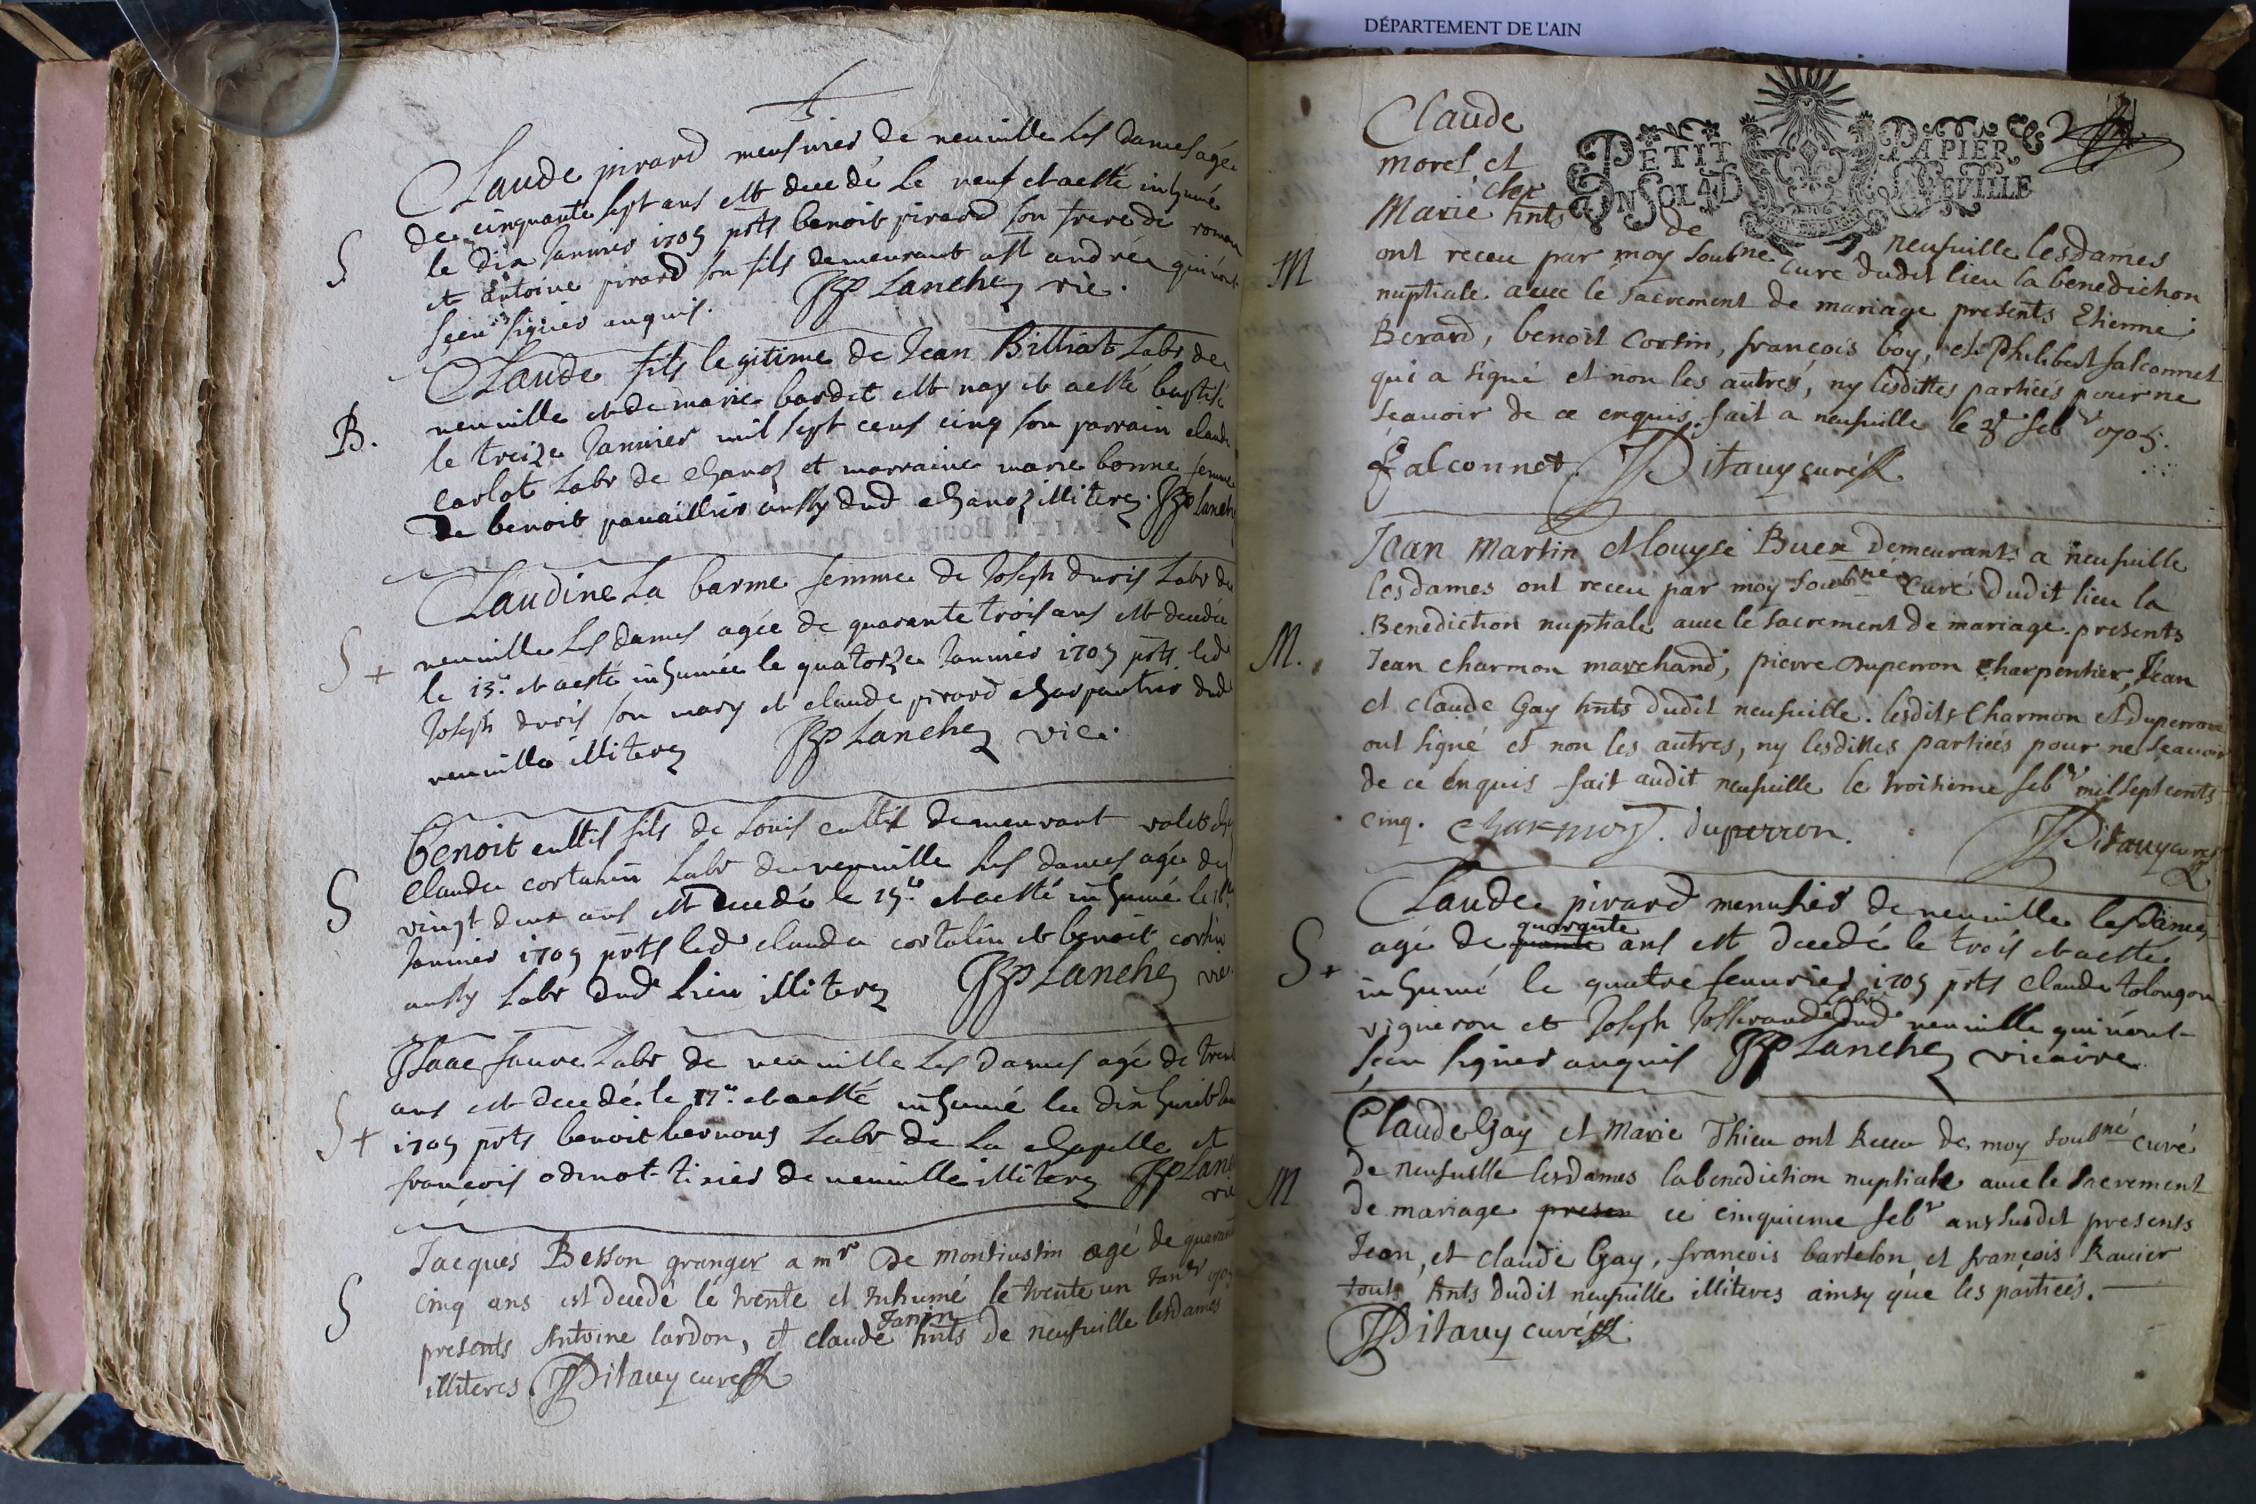 Claude pirard meusnier de neuuille les dames agé
de cinquante sept ans est decedé le neuf et a esté inhumé
S
le dix Januier 1705 pnts benoit pirard son frere de roman
et Antoine pirard son fils demeurant a st andré qui n'ont
sceu signer enquis. Lanchez vic.
Claude fils legitime de Jean Billiat Labr de
neuuille et de marie bardet est nay et a esté baptisé
B.
le treize Januier mil sept cens cinq son parrain claude
carlot Labr de chanoz et marraine marie bonne femme
de benoit pauaillier aussy dud chanoz illiterez. Lanch
Claudine La barme femme de Joseph duris Labr de
neuuille les dames agée de quarante trois ans est decedée
S +
le 13e et a esté inhumée le quatorze Januier 1705 pnts led
Joseph duris son mary et claude pirard charpantier dud
neuuille illiterez Lanchez vic.
Benoit cultif fils de Louis cultif demeurant valet chez
Claude cortalin Labr de neuuille les dames agé de
S
vingt deux ans est decedé le 15e et a esté inhumé le
Januier 1705 pnts led claude cortalin et benoit cortin
aussy Labr dud Lieu illiterez Lanchez vic.
Isaac faure Labr de neuuille les dames agé de trent
ans est decedé le 17e et a esté inhumé le dix huict du
S +
1705 pnts benoit bernous Labr de La chapelle et
françois odinot tixier de neuuille illiterez Lan
vi
Jacques Besson granger a mr De montiustin agé de quarant
cinq ans est decedé le trente et Inhumé le trente un Janer 1705
S
Janin
presents Antoine lardon, et claude hnts de neufuille lesdames
illiteres Ditauy curé
DÉPARTEMENT DE L'AIN
Claude
morel et
PETIT PAPIER
2
cler
Marie hnts de neufuille lesdames
M
ont receu par moy soubné Curé dudit lieu la benediction
nuptiale auec le sacrement de mariage presents Etienne
Berard, benoit Cortin, françois boy, et Philibert falconnet
qui a signé et non les autres, ny lesdittes partiees pour ne
sçauoir de ce enquis. fait a neufuille le 3e febr 1705.
falconnet. Ditauy curé
Jean Martin et louyse Buex demeurants a neufuille
lesdames ont receu par moy soubné Curé dudit lieu la
Benediction nuptiale auec le sacrement de mariage. presents
M.
Jean charmon marchand, pierre duperron Charpentier, Jean
et claude Gay hnts dudit neufuille. lesdits Charmon et duperron
ont signé et non les autres, ny lesdittes partiees pour ne sçauoir
de ce enquis fait audit neufuille le troisieme febr mil sept cents
cinq. charmon. duperron. Ditauy curé
Claude pirard menusier de neuuille les Dames
quarante
agé de ans est decedé le trois et a esté
S +
inhumé le quatre feuurier 1705 pnts Claude tolongon
Labr
vigneron et Joseph Josserand dud neuuille qui n'ont
sceu signer enquis Lanchez vicaire
Claude Gay et Marie Thieu ont Receu de moy soubné curé
de neufuille lesdames la benediction nuptiale auec le sacrement
M
de mariage presen ce cinquieme febr an susdit presents
Jean, et claude Gay, françois bartelon et françois Rauier
touts hnts dudit neufuille illiteres ainsy que les partiees.
Ditauy curé